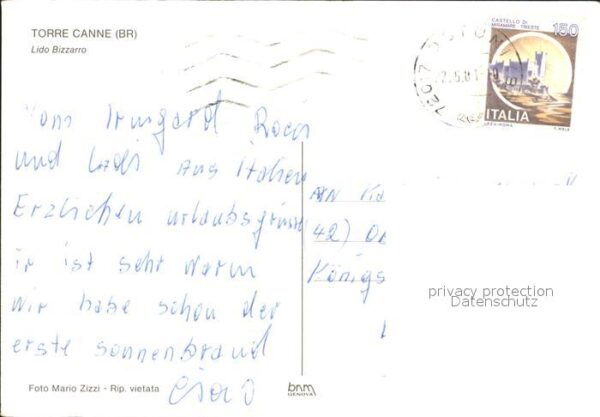 TORRE CANNE (BR)
Lido Bizzarro
CASTELLO DI
MIRAMARE - TRIESTE
150
ITALIA
Vom Irmgard Rocco
und Ladi Aus Italien
Erzlichen urlaubsgrüsse
ir ist sehr warm
wir habe schon der
erste sonnenbrand
Ciao
AN
42)
Königs
privacy protection
Datenschutz
Foto Mario Zizzi - Rip. vietata
bnm
GENOVA